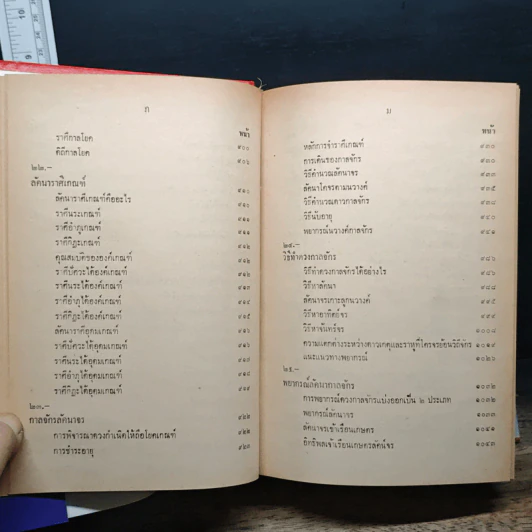 ภ
หน้า
ราศีกาลโยค ๙๐๐
ดิถีกาลโยค ๙๐๖
๒๒.-
ลัคนาราศีเกณฑ์ ๙๑๐
ลัคนาราศีเกณฑ์คืออะไร ๙๑๐
ราศีนระเกณฑ์ ๙๑๑
ราศีอัมภุเกณฑ์
ราศีกีฏะเกณฑ์
คุณสมบัติขององค์เกณฑ์ ๙๑๒
ราศีปัศวะได้องค์เกณฑ์ ๙๑๒
ราศีนระได้องค์เกณฑ์ ๙๑๓
ราศีอัมภุได้องค์เกณฑ์ ๙๑๔
ราศีกีฏะได้องค์เกณฑ์ ๙๑๕
ลัคนาราศีอุดมเกณฑ์
ราศีปัศวะได้อุดมเกณฑ์
ราศีนระได้อุดมเกณฑ์
ราศีอัมภุได้อุดมเกณฑ์
ราศีกีฏะได้อุดมเกณฑ์
๒๓.-
กาลจักรลัคนาจร ๙๒๒
การพิจารณาดวงกำเนิดให้ถือโยคเกณฑ์ ๙๒๒
การชำระอายุ ๙๒๓
ม
หน้า
หลักการชำราศีเกณฑ์ ๙๓๐
การเดินของกาลจักร ๙๓๐
วิธีคำนวณลัคนาจร ๙๓๓
ลัคนาโคจรตามนวางค์ ๙๓๕
วิธีคำนวณดาวกาลจักร ๙๓๘
วิธีนับอายุ ๙๔๐
พยากรณ์นวางค์กาลจักร ๙๔๑
๒๔.-
วิธีทำดวงกาลจักร ๙๘๖
วิธีทำดวงกาลจักรได้อย่างไร
วิธีหาลัคนา
ลัคนาจรเกาะลูกนวางค์
วิธีหาอาทิตย์จร
วิธีหาจันทร์จร ๑๐๐๘
ความแตกต่างระหว่างดาวเกตุและราหูที่โคจรย้อนวิถีจักร ๑๐๑๔
แนะแนวทางพยากรณ์ ๑๐๒๖
๒๕.-
พยากรณ์ลัคนากาลจักร ๑๐๓๒
การพยากรณ์ดวงกาลจักรแบ่งออกเป็น ๒ ประเภท ๑๐๓๒
พยากรณ์ลัคนาจร ๑๐๓๓
ลัคนาจรเข้าเรือนเกษตร ๑๐๔๑
อิทธิพลเจ้าเรือนเกษตรลัคน์จร ๑๐๔๓